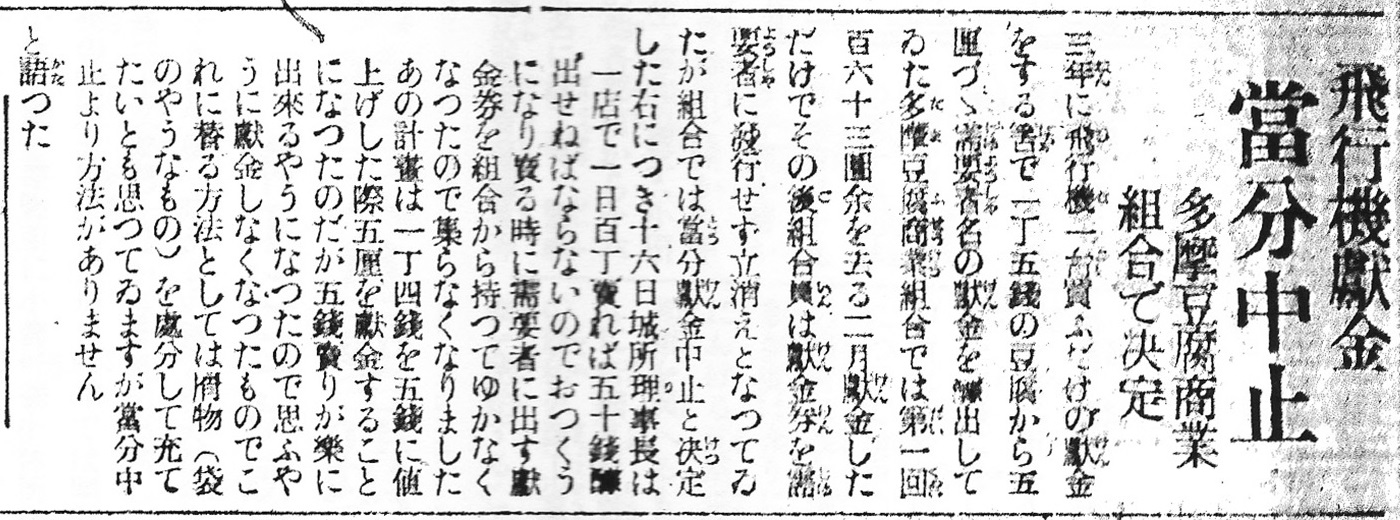 飛行機獻金
當分中止
多摩豆腐商業
組合で決定
三年に飛行機一台買ふだけの獻金
をする筈で一丁五錢の豆腐から五
厘づゝ需要者名の獻金を醵出して
ゐた多摩豆腐商業組合では第一回
百六十三圓余を去る二月獻金した
だけでその後組合員は獻金券を需
要者に發行せず立消えとなつてゐ
たが組合では當分獻金中止と決定
した右につき十六日城所理事長は
一店で一日百丁賣れば五十錢醵
出せねばならないのでおつくう
になり賣る時に需要者に出す獻
金券を組合から持つてゆかなく
なつたので集らなくなりました
あの計畫は一丁四錢を五錢に値
上げした際五厘を獻金すること
になつたのだが五錢賣りが樂に
出來るやうになつたので思ふや
うに獻金しなくなつたものでこ
れに替る方法としては屑物（袋
のやうなもの）を處分して充て
たいとも思つてゐますが當分中
止より方法がありません
と語つた